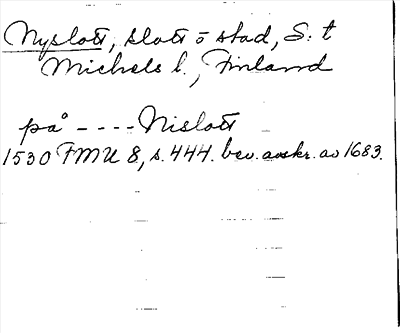 Nyslott, slott o stad, S:t
Michels l., Finland
på ---- Nislott
1530 FMU 8, s. 444. bev. avskr. av 1683.